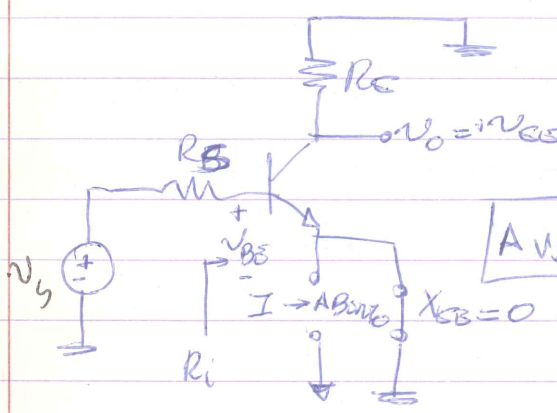 RC
vo = +vCE
RB
+
vBE
-
+
-
vs
Av
I → ABierto
XCB = 0
Ri